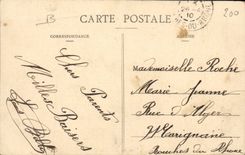 B
200
CARTE POSTALE
CORRESPONDANCE
ADRESSE
Chers Parents
Milles Baisers
Mademoiselle Roche
Marie Jeanne
Rue d'Alger
Marignane
Bouches du Rhône